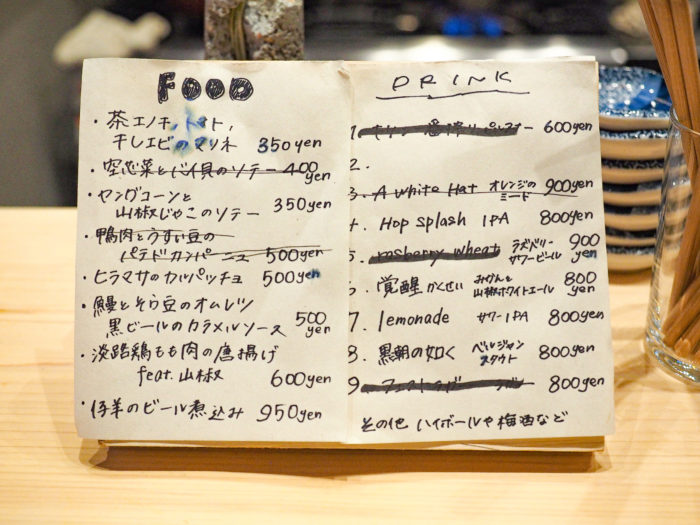 FOOD
・茶エノキ、トマト、
干しエビのマリネ 350yen
・空芯菜とバイ貝のソテー 400
yen
・ヤングコーンと
山椒じゃこのソテー 350yen
・鴨肉とうすい豆の
パテドカンパーニュ 500yen
・ヒラマサのカルパッチョ 500yen
・鰻とそら豆のオムレツ
黒ビールのカラメルソース 500
yen
・淡路鶏もも肉の唐揚げ
feat.山椒 600yen
・仔羊のビール煮込み 950yen
DRINK
1. キリン 一番搾り 600yen
2.
3. A White Hat オレンジの
ミード 900yen
4. Hop splash IPA 800yen
5. rasberry wheat ラズベリー
サワービール 900
yen
6. 覚醒 かくせい みかんと
山椒ホワイトエール 800
yen
7. lemonade サワーIPA 800yen
8. 黒朝の如く ベルジャン
スタウト 800yen
9. 800yen
その他 ハイボールや梅酒など